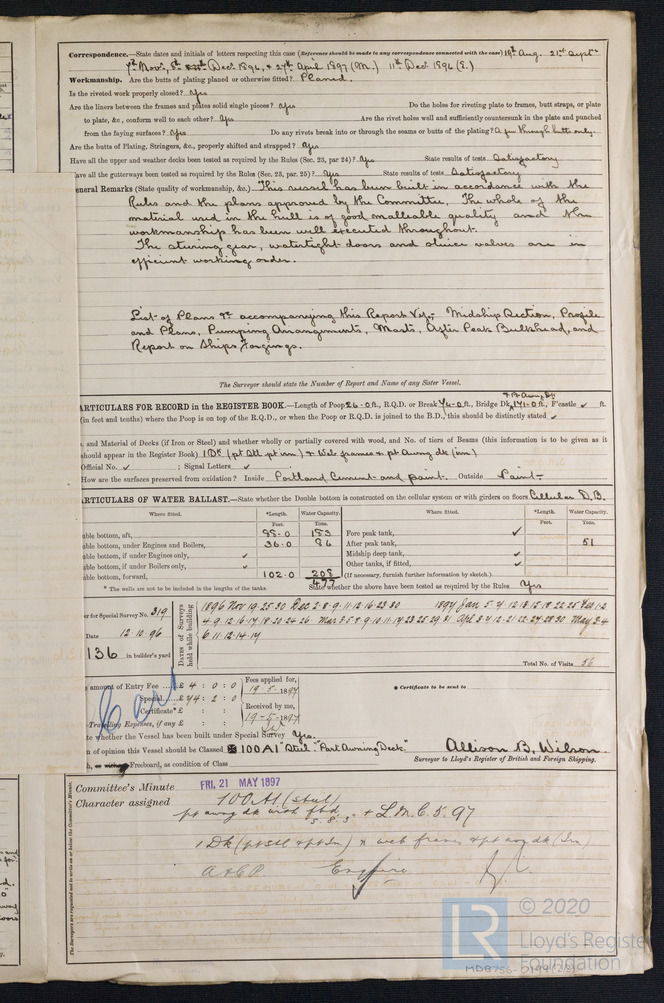 Correspondence.—State dates and initials of letters respecting this case (Reference should be made to any correspondence connected with the case) 19th Aug. 21st Sept.
7th Nov., 8th Dec. 1896, & 27th April 1897 (Mr.) 11th Dec. 1896 (S.)
Workmanship. Are the butts of plating planed or otherwise fitted? Planed.
Is the riveted work properly closed? Yes
Are the liners between the frames and plates solid single pieces? Yes Do the holes for riveting plate to frames, butt straps, or plate
to plate, &c., conform well to each other? Yes Are the rivet holes well and sufficiently countersunk in the plate and punched
from the faying surfaces? Yes Do any rivets break into or through the seams or butts of the plating? A few through butts only.
Are the butts of Plating, Stringers, &c., properly shifted and strapped? Yes
Have all the upper and weather decks been tested as required by the Rules (Sec. 23, par 24)? Yes State results of tests Satisfactory
ave all the gutterways been tested as required by the Rules (Sec. 23, par. 25)? Yes State results of tests Satisfactory
eneral Remarks (State quality of workmanship, &c.) This vessel has been built in accordance with the
Rules and the plans approved by the Committee. The whole of the
material used in the hull is of good malleable quality and the
workmanship has been well executed throughout.
The steering gear, watertight doors and sluice valves are in
efficient working order.
List of Plans &c accompanying this Report Viz:- Midship Section, Profile
and Plans, Pumping Arrangements, Masts, After Peak Bulkhead, and
Report on Ships Forgings.
The Surveyor should state the Number of Report and Name of any Sister Vessel.
ARTICULARS FOR RECORD in the REGISTER BOOK.—Length of Poop 26·0 ft., R.Q.D. or Break 76·0 ft., Bridge Dk 171·0 ft., F'castle ✓ ft.
(in feet and tenths) where the Poop is on top of the R.Q.D., or when the Poop or R.Q.D. is joined to the B.D., this should be distinctly stated ✓
, and Material of Decks (if Iron or Steel) and whether wholly or partially covered with wood, and No. of tiers of Beams (this information is to be given as it
should appear in the Register Book) 1 Dk (pt Stl pt irn) & Web frames & pt Awng dk (irn)
Official No. ✓ ; Signal Letters ✓
How are the surfaces preserved from oxidation? Inside Portland Cement and paint. Outside Paint.
ARTICULARS OF WATER BALLAST.—State whether the Double bottom is constructed on the cellular system or with girders on floors Cellular D.B.
Where fitted. *Length. Water Capacity. Where fitted. *Length. Water Capacity.
Feet. Tons. Feet. Tons.
uble bottom, aft, 98·0 183 Fore peak tank, ✓
uble bottom, under Engines and Boilers, 36·0 86 After peak tank, 51
uble bottom, if under Engines only, ✓ Midship deep tank, ✓
uble bottom, if under Boilers only, ✓ Other tanks, if fitted, ✓
uble bottom, forward, 102·0 208 (If necessary, furnish further information by sketch.)
477
* The wells are not to be included in the lengths of the tanks. State whether the above have been tested as required by the Rules Yes
er for Special Survey No. 319
Date 12.10.96
136 in builder's yard
DATES of Surveys held while building
1896 Nov 19.25.30 Dec 2.8.9.11.12.16.23.30 1897 Jan
Total No. of Visits 56
amount of Entry Fee £ 4 : 0 : 0 Fees applied for,
19.5.1897
Special £ 44 : 2 : 0
Certificate* £ : : Received by me,
19-5-1897
Travelling Expenses, if any £ : :
* Certificate to be sent to
te whether the Vessel has been built under Special Survey Yes.
n of opinion this Vessel should be Classed 100 A1 Steel "Part Awning Deck"
Allison B. Wilson.
h, Freeboard, as condition of Class
Surveyor to Lloyd's Register of British and Foreign Shipping.
Committee's Minute FRI. 21 MAY 1897
Character assigned 100 A1 (steel)
pt awng dk with fbd + L.M.C. 5.97
1 Dk (pt Stl & pt Irn) & web frames & pt awng dk (Irn)
A & C P
The Surveyors are requested not to write on or below the Committee's Minute.
© 2020
LR
Lloyd's Registe
Foundation